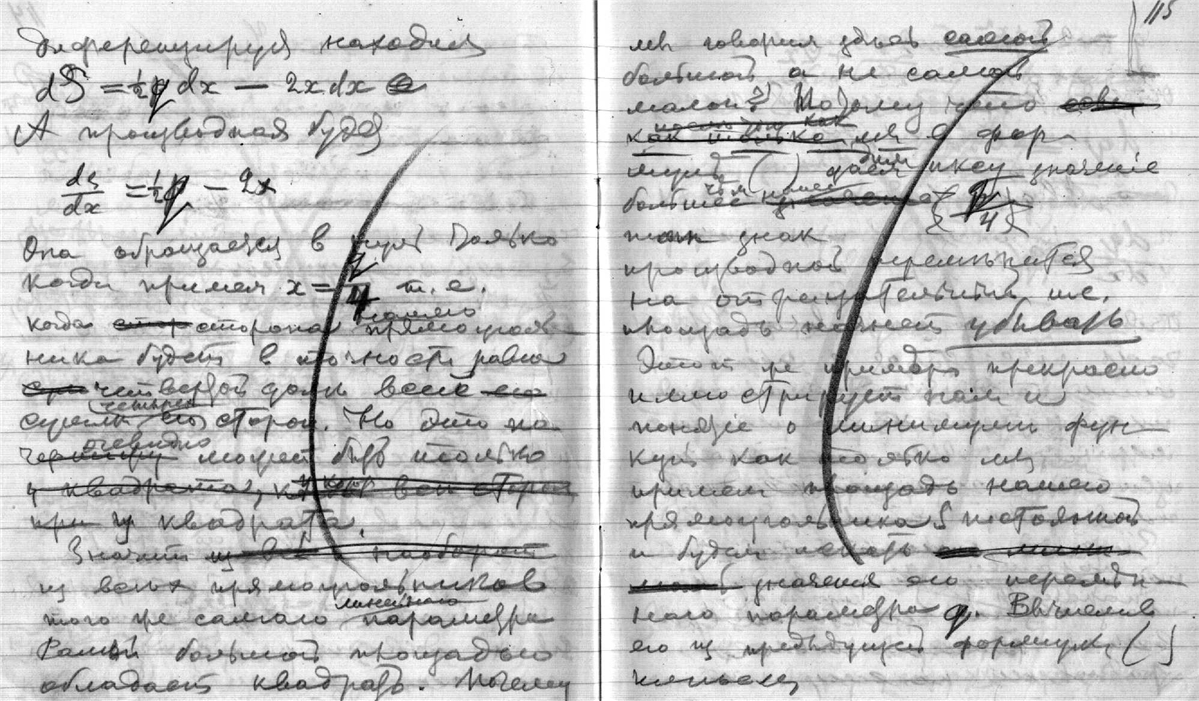 Диференцируя находим
dS = ½q dx − 2x dx
А производная будет
dS/dx = ½q − 2x
Она обращается в нуль только
когда примем x = q/4 т.е.
когда сторона нашего прямоуголь-
ника будет в точности равна
четвертой доле всей
суммы четырех его сторон. Но это
очевидно может быть только
при у квадрата.
Значит
из всех прямоугольников
того же самого линейного параметра
самой большой площадью
обладает квадрат. Почему
115
мы говорим здесь самой
большой, а не самой
малой? Потому что
как только мы в фор-
муле ( ) дадим иксу значение
большее чем q/4
знак
производной переменится
на отрицательный т.е.
площадь начнет убывать
Этот же пример прекрасно
иллюстрирует нам и
понятие о минимуме фун-
кции как только мы
примем площадь нашего
прямоугольника S постоянной
и будем искать
значения его перемен-
ного параметра q. Вычислив
его из предыдущей формулы ( )
имеем